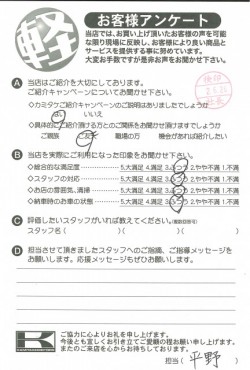 軽
お客様アンケート
当店では、お買い上げ頂いたお客様の声を可能
な限り現場に反映し、お客様により良い商品と
サービスを提供する事に努めています。
大変お手数ですが是非お声をお聞かせ下さい。
A 当店はご紹介を大切にしております。
ご紹介キャンペーンについてお聞かせ下さい。
カミタケご紹介キャンペーンのご説明はありましたでしょうか
はい いいえ
具体的にご紹介頂ける方とのご関係をお聞かせ頂けますでしょうか
ご親族 ご友人 職場の方 機会があればご紹介したい
B 当店を実際にご利用になった印象をお聞かせ下さい。
総合的な満足度 5.大満足 4.満足 3.ふつう 2.やや不満 1.不満
スタッフの対応 5.大満足 4.満足 3.ふつう 2.やや不満 1.不満
お店の雰囲気、清掃 5.大満足 4.満足 3.ふつう 2.やや不満 1.不満
納車時のお車の状態 5.大満足 4.満足 3.ふつう 2.やや不満 1.不満
C 評価したいスタッフがいれば教えてください。(複数回答可)
スタッフ名( )( )( )
D 担当させて頂きましたスタッフへのご指摘、ご指導メッセージを
お願いします。応援メッセージもぜひお願いします。
ご協力に心よりお礼を申し上げます。
今後とも宜しくお引き立てご愛顧の程お願い申し上げます。
またのご来店を心からお待ちしております。
担当( 平野 )